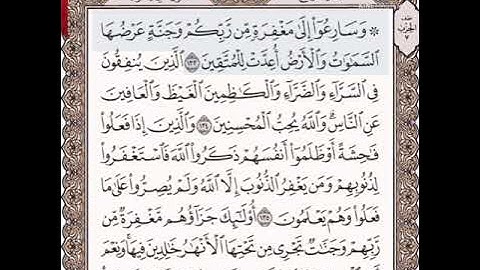 ۞ وَسَارِعُوٓا۟ إِلَىٰ مَغْفِرَةٍ مِّن رَّبِّكُمْ وَجَنَّةٍ عَرْضُهَا
ٱلسَّمَٰوَٰتُ وَٱلْأَرْضُ أُعِدَّتْ لِلْمُتَّقِينَ ١٣٣ ٱلَّذِينَ يُنفِقُونَ
فِى ٱلسَّرَّآءِ وَٱلضَّرَّآءِ وَٱلْكَٰظِمِينَ ٱلْغَيْظَ وَٱلْعَافِينَ
عَنِ ٱلنَّاسِ ۗ وَٱللَّهُ يُحِبُّ ٱلْمُحْسِنِينَ ١٣٤ وَٱلَّذِينَ إِذَا فَعَلُوا۟
فَٰحِشَةً أَوْ ظَلَمُوٓا۟ أَنفُسَهُمْ ذَكَرُوا۟ ٱللَّهَ فَٱسْتَغْفَرُوا۟
لِذُنُوبِهِمْ وَمَن يَغْفِرُ ٱلذُّنُوبَ إِلَّا ٱللَّهُ وَلَمْ يُصِرُّوا۟ عَلَىٰ مَا
فَعَلُوا۟ وَهُمْ يَعْلَمُونَ ١٣٥ أُو۟لَٰٓئِكَ جَزَآؤُهُم مَّغْفِرَةٌ مِّن
رَّبِّهِمْ وَجَنَّٰتٌ تَجْرِى مِن تَحْتِهَا ٱلْأَنْهَٰرُ خَٰلِدِينَ فِيهَا ۚ وَنِعْمَ